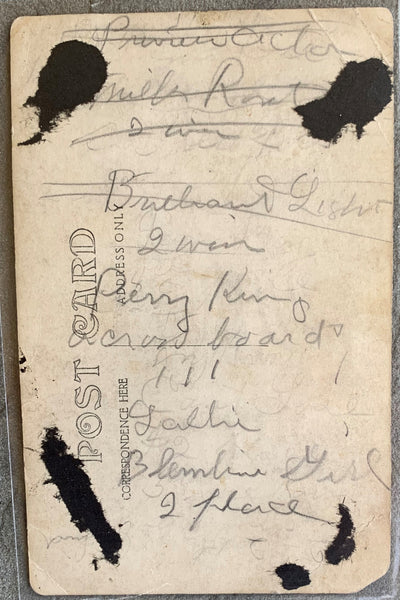 Actor
Miller Road
2 win
Brilliant Light
2 win
Perry King
across board
1 1 1
Girl
2 place
POST CARD
ADDRESS ONLY
CORRESPONDENCE HERE